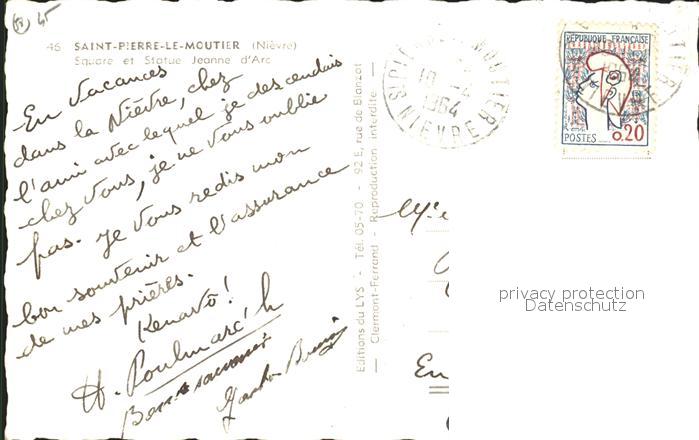 45
46 SAINT-PIERRE-LE-MOUTIER (Nièvre)
Square et Statue Jeanne d'Arc
En vacances
dans la Nièvre, chez
l'ami avec lequel je descendais
chez vous, je ne vous oublie
pas. Je vous redis mon
bon souvenir et l'assurance
de mes prières.
Kenavo!
H. Poulmarc'h
Bon souvenir
Editions du LYS - Tél. 05-70 - 92 E, rue de Blanzat
Clermont-Ferrand - Reproduction interdite
ST PIERRE LE MOUTIER
1964
NIEVRE
REPUBLIQUE FRANÇAISE
POSTES 0,20
En
privacy protection
Datenschutz